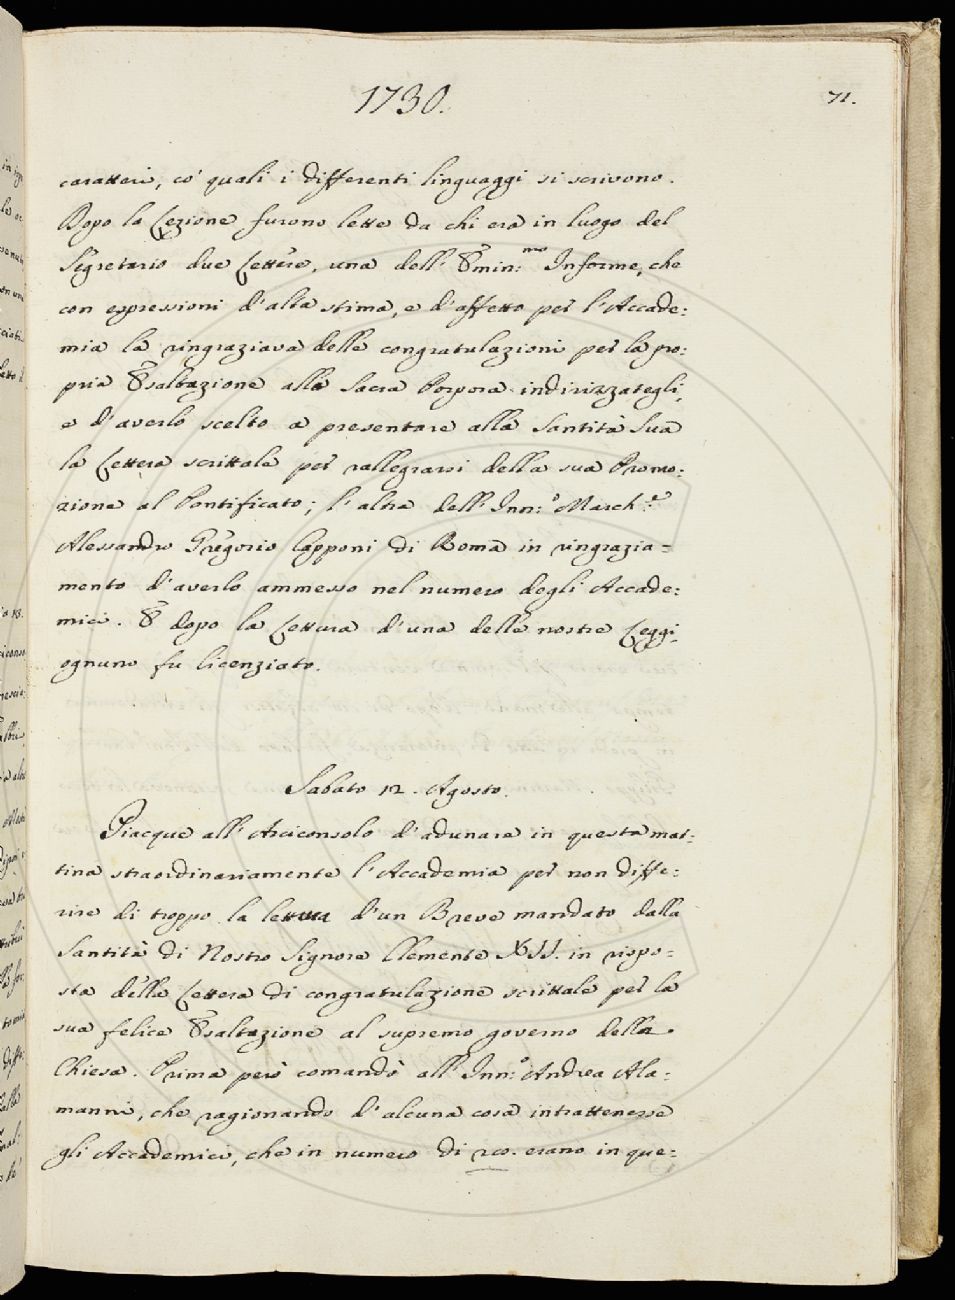 1730.
71.
caratteri, co' quali i differenti linguaggi si scrivono.
Dopo la Lezione furono lette da chi era in luogo del
Segretario due Lettere, una dell' Emin:mo Informe, che
con espressioni d'alta stima, e d'affetto per l'Accade:
mia la ringraziava delle congratulazioni per la pro:
pria Esaltazione alla Sacra Porpora indirizzategli,
e d'averlo scelto a presentare alla Santità Sua
la Lettera scrittale per rallegrarsi della sua Promo:
zione al Pontificato; l'altra dell' Inn:o March:e
Alessandro Gregorio Capponi di Roma in ringrazia=
mento d'averlo ammesso nel numero degli Accade:
mici. E dopo la Lettura d'una delle nostre Leggi
ognuno fu licenziato.
Sabato 12. Agosto.
Piacque all' Arciconsolo d'adunare in questa mat:
tina straordinariamente l'Accademia per non diffe:
rire di troppo la lettura d'un Breve mandato dalla
Santità di Nostro Signore Clemente XII. in rispo=
sta della Lettera di congratulazione scrittale per la
sua felice Esaltazione al supremo governo della
Chiesa. Prima però comandò all' Inn:o Andrea Ala=
manni, che ragionando d'alcuna cosa intrattenesse
gli Accademici, che in numero di erano in que: